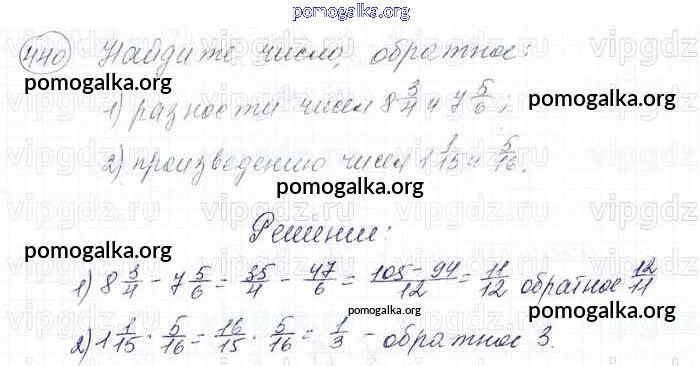 pomogalka.org
440 Найдите число, обратное:
pomogalka.org
1) разности чисел 8 3/4 и 7 5/6;
pomogalka.org
2) произведению чисел 1 1/15 и 5/16.
pomogalka.org
Решение:
pomogalka.org
1) 8 3/4 - 7 5/6 = 35/4 - 47/6 = 105-94/12 = 11/12 обратное 12/11
pomogalka.org
2) 1 1/15 · 5/16 = 16/15 · 5/16 = 1/3 - обратное 3.
pomogalka.org